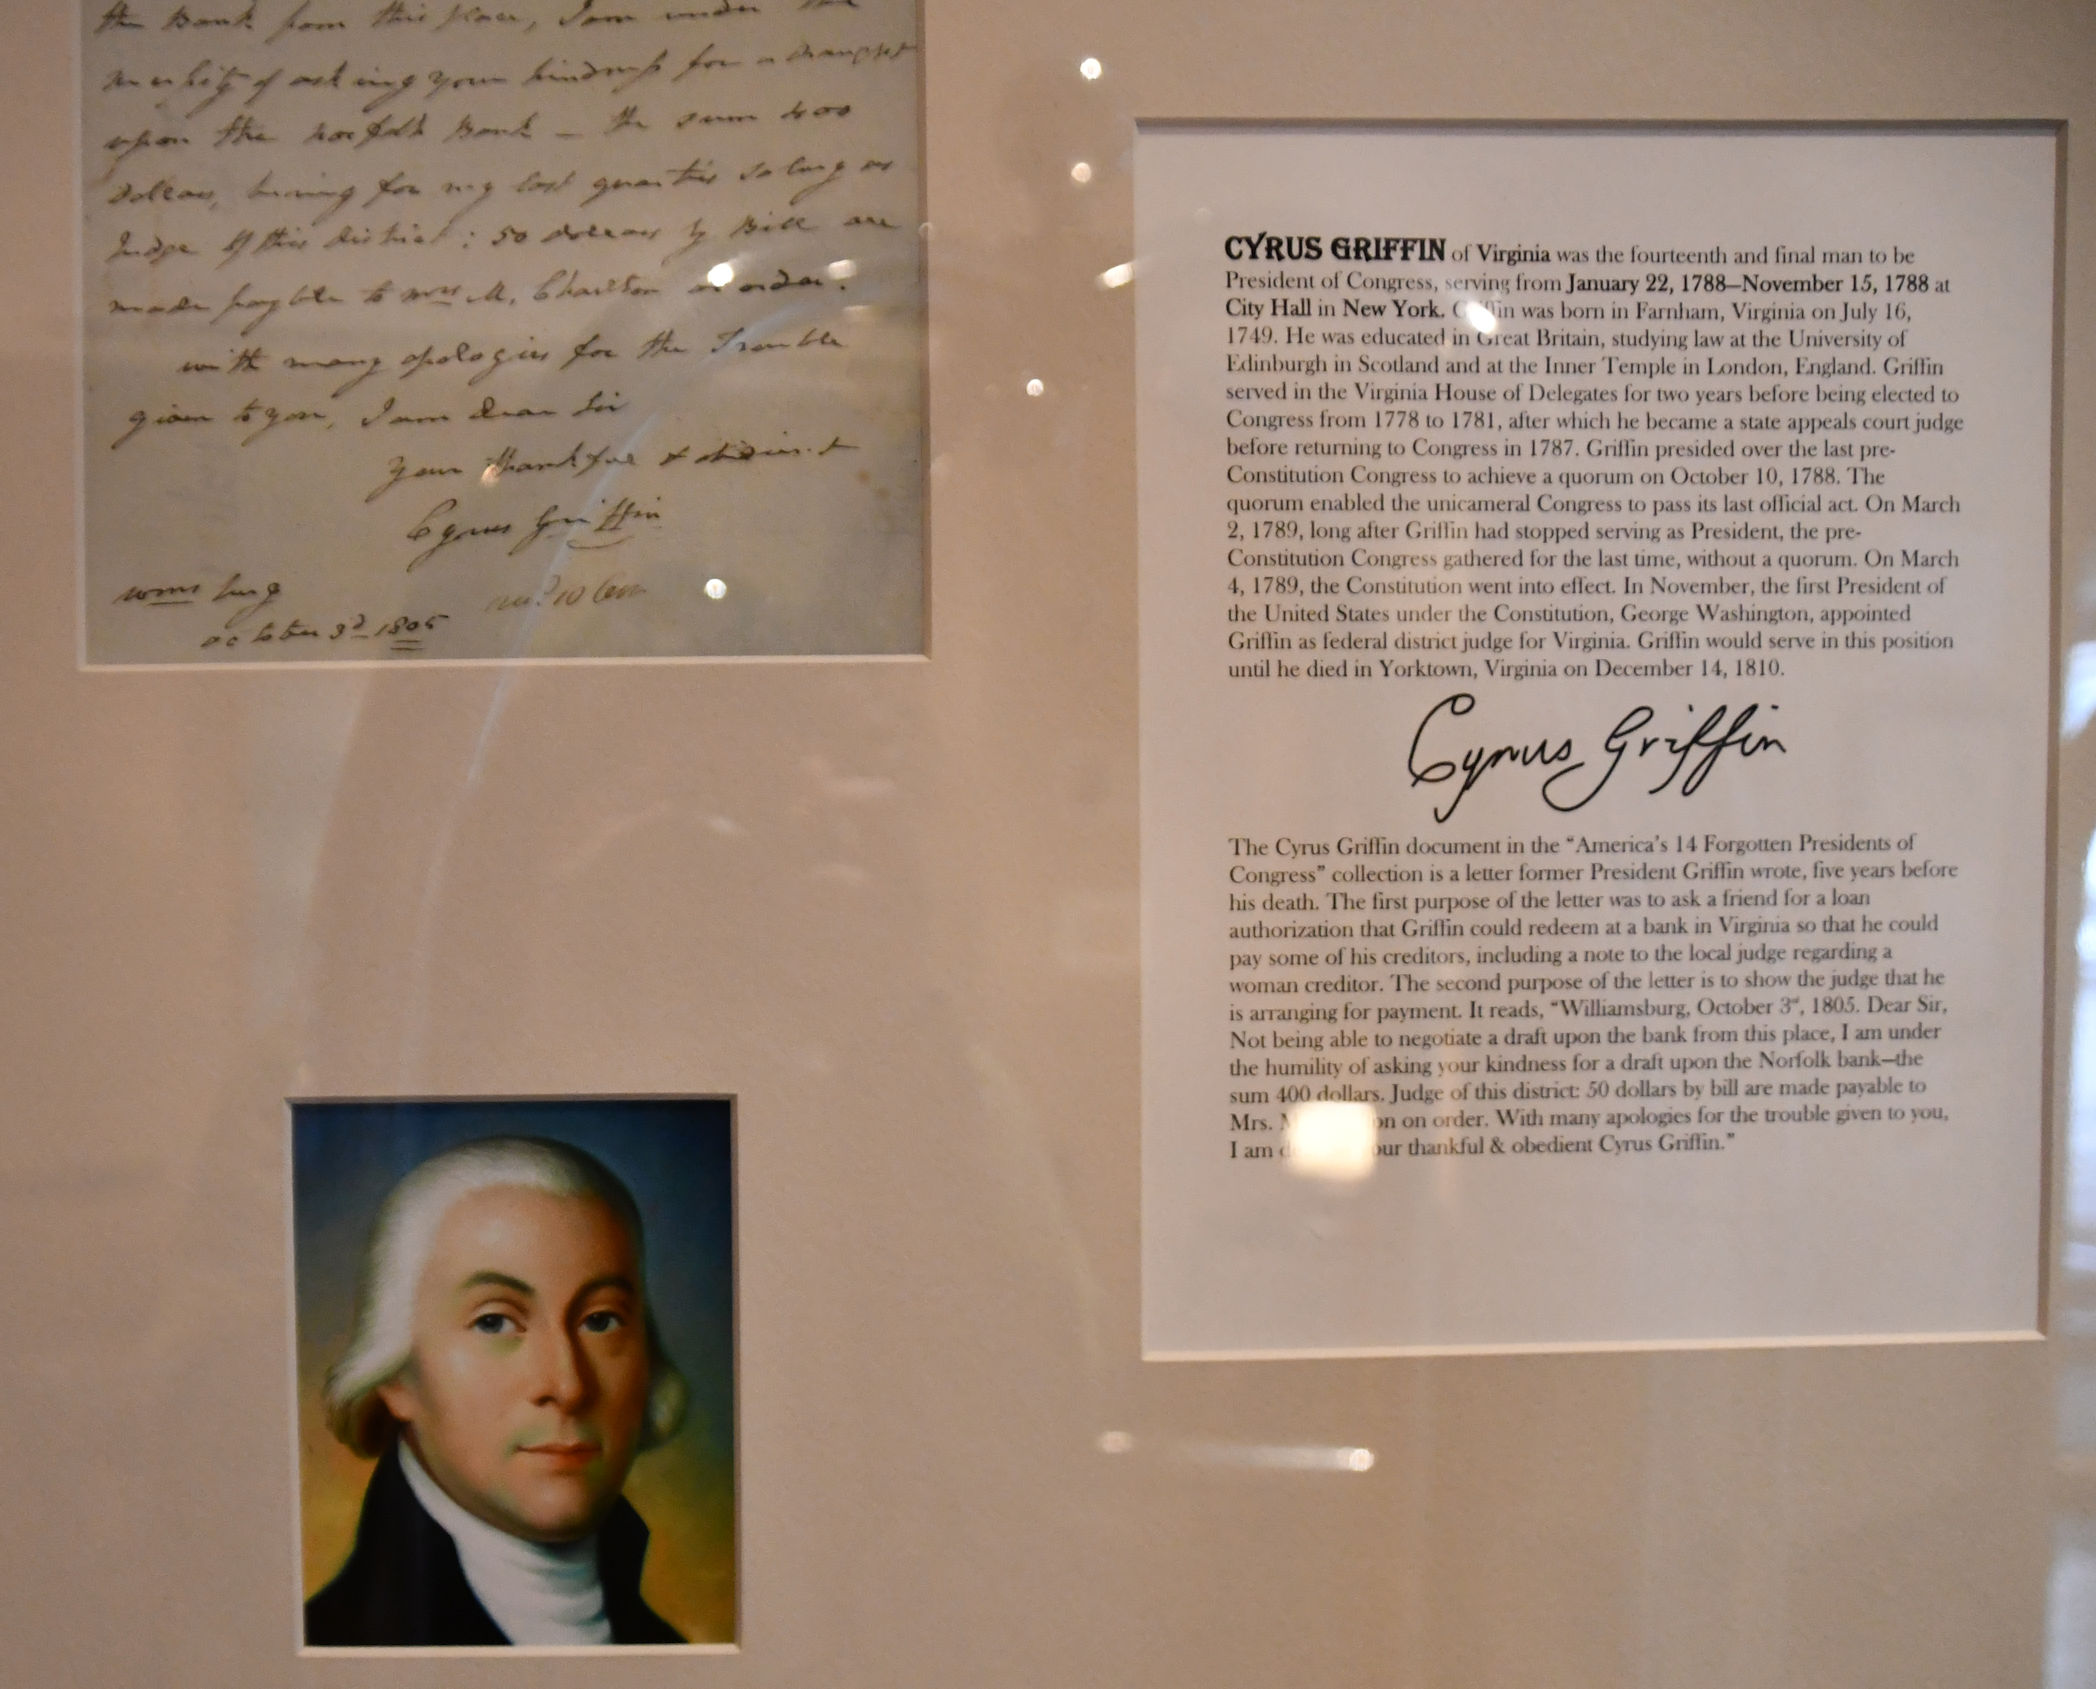 the Bank from this place, I am under the
of asking your kindness for a
upon the Norfolk Bank – the sum 400
Dollars, having for my last quarter's salary as
Judge of this district: 50 dollars by Bill are
made payable to Mrs M. Charlton or order.
with many apologies for the Trouble
given to you, I am Dear Sir
your thankful & obedient
Cyrus Griffin
Wmsburg
October 3d 1805
CYRUS GRIFFIN of Virginia was the fourteenth and final man to be
President of Congress, serving from January 22, 1788–November 15, 1788 at
City Hall in New York. was born in Farnham, Virginia on July 16,
1749. He was educated in Great Britain, studying law at the University of
Edinburgh in Scotland and at the Inner Temple in London, England. Griffin
served in the Virginia House of Delegates for two years before being elected to
Congress from 1778 to 1781, after which he became a state appeals court judge
before returning to Congress in 1787. Griffin presided over the last pre-
Constitution Congress to achieve a quorum on October 10, 1788. The
quorum enabled the unicameral Congress to pass its last official act. On March
2, 1789, long after Griffin had stopped serving as President, the pre-
Constitution Congress gathered for the last time, without a quorum. On March
4, 1789, the Constitution went into effect. In November, the first President of
the United States under the Constitution, George Washington, appointed
Griffin as federal district judge for Virginia. Griffin would serve in this position
until he died in Yorktown, Virginia on December 14, 1810.
Cyrus Griffin
The Cyrus Griffin document in the “America’s 14 Forgotten Presidents of
Congress” collection is a letter former President Griffin wrote, five years before
his death. The first purpose of the letter was to ask a friend for a loan
authorization that Griffin could redeem at a bank in Virginia so that he could
pay some of his creditors, including a note to the local judge regarding a
woman creditor. The second purpose of the letter is to show the judge that he
is arranging for payment. It reads, “Williamsburg, October 3rd, 1805. Dear Sir,
Not being able to negotiate a draft upon the bank from this place, I am under
the humility of asking your kindness for a draft upon the Norfolk bank–the
sum 400 dollars. Judge of this district: 50 dollars by bill are made payable to
Mrs. on order. With many apologies for the trouble given to you,
I am thankful & obedient Cyrus Griffin.”